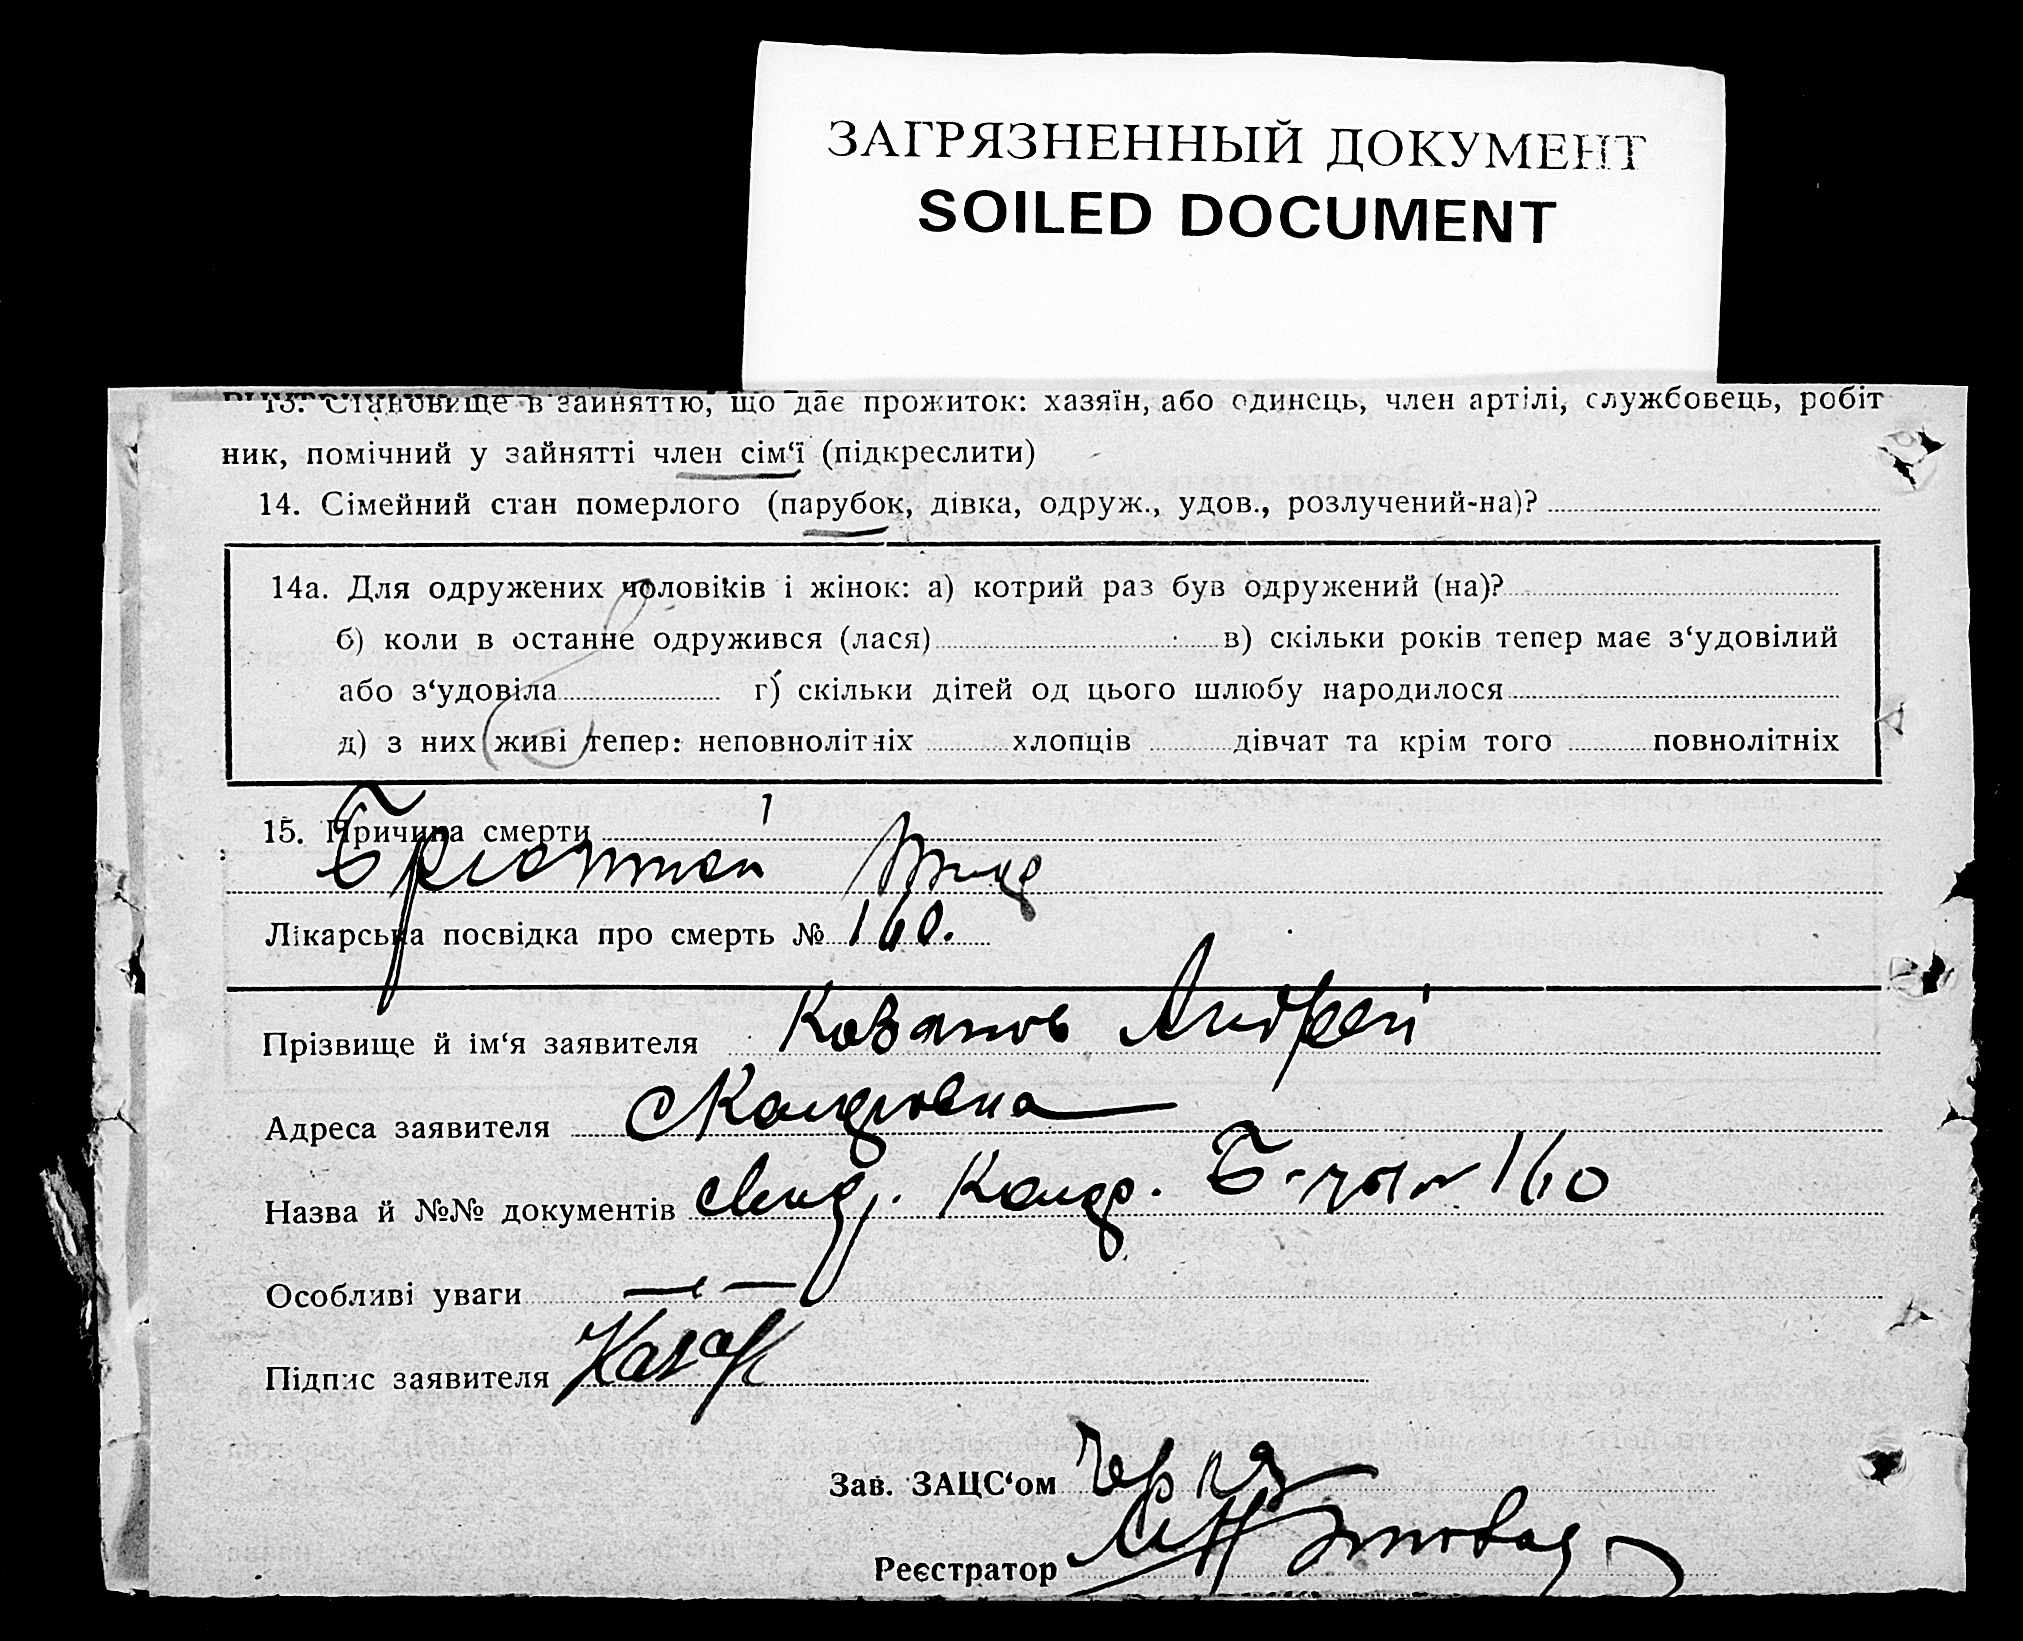 ЗАГРЯЗНЕННЫЙ ДОКУМЕНТ
SOILED DOCUMENT
13. Становище в зайняттю, що дає прожиток: хазяїн, або одинець, член артілі, службовець, робіт
ник, помічний у зайнятті член сім‘ї (підкреслити)
14. Сімейний стан померлого (парубок, дівка, одруж., удов., розлучений-на)?
14а. Для одружених чоловіків і жінок: а) котрий раз був одружений (на)?
б) коли в останнє одружився (лася) в) скільки років тепер має з‘удовілий
або з‘удовіла г) скільки дітей од цього шлюбу народилося
д) з них живі тепер: неповнолітніх хлопців дівчат та крім того повнолітніх
15. Причина смерти
Брюшной тиф
Лікарська посвідка про смерть № 160.
Прізвище й ім‘я заявителя Андрей
Адреса заявителя
Назва й №№ документів 160
Особливі уваги — —
Підпис заявителя
Зав. ЗАЦС‘ом
Реєстратор